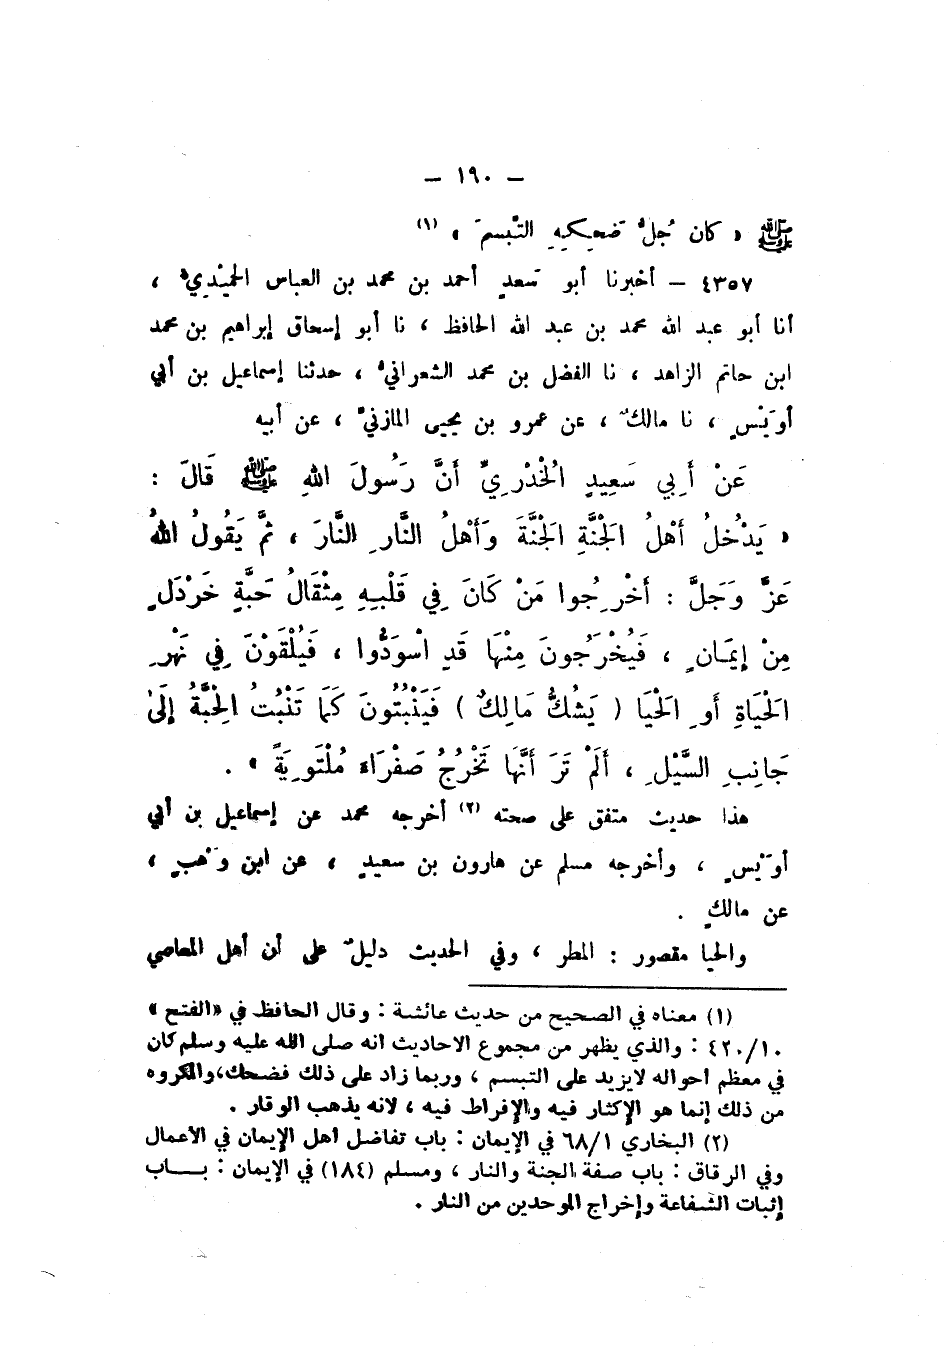 – ١٩٠ –
ﷺ « كان جُلُّ ضحِكِهِ التبسمَ » (١)
٤٣٥٧ – أخبرنا أبو سعدٍ أحمد بن محمد بن العباس الحميْدِيُّ ،
أنا أبو عبد الله محمد بن عبد الله الحافظ ، نا أبو إسحاق إبراهيم بن محمد
ابن حاتم الزاهد ، نا الفضل بن محمد الشعرانيُّ ، حدثنا إسماعيل بن أبي
أويْسٍ ، نا مالكٌ ، عن عمرو بن يحيى المازنيُّ ، عن أبيه
عَنْ أَبِي سَعِيدٍ الْخُدْرِيِّ أَنَّ رَسُولَ اللهِ ﷺ قَالَ :
« يَدْخُلُ أَهْلُ الجَنَّةِ الجَنَّةَ وَأَهْلُ النَّارِ النَّارَ ، ثُمَّ يَقُولُ اللهُ
عَزَّ وَجَلَّ : أَخْرِجُوا مَنْ كَانَ فِي قَلْبِهِ مِثْقَالُ حَبَّةِ خَرْدَلٍ
مِنْ إِيمَانٍ ، فَيُخْرَجُونَ مِنْهَا قَدِ اسْوَدُّوا ، فَيُلْقَوْنَ فِي نَهْرِ
الحَيَاةِ أَوِ الحَيَا ( يَشُكُّ مَالِكٌ ) فَيَنْبُتُونَ كَمَا تَنْبُتُ الحِبَّةُ إِلَىٰ
جَانِبِ السَّيْلِ ، أَلَمْ تَرَ أَنَّهَا تَخْرُجُ صَفْرَاءَ مُلْتَوِيَةً » .
هذا حديث متفق على صحته (٢) أخرجه محمد عن إسماعيل بن أبي
أويْسٍ ، وأخرجه مسلم عن هارون بن سعيدٍ ، عن ابن وَهْبٍ ،
عن مالكٍ .
والحيا مقصور : المطر ، وفي الحديث دليلٌ على أن أهل المعاصي
(١) معناه في الصحيح من حديث عائشة : وقال الحافظ في «الفتح»
٤٢٠/١٠ : والذي يظهر من مجموع الاحاديث انه صلى الله عليه وسلم كان
في معظم أحواله لايزيد على التبسم ، وربما زاد على ذلك فضحك،والمكروه
من ذلك إنما هو الإكثار فيه والإفراط فيه ، لانه يذهب الوقار .
(٢) البخاري ٦٨/١ في الإيمان : باب تفاضل أهل الإيمان في الأعمال
وفي الرقاق : باب صفة الجنة والنار ، ومسلم (١٨٤) في الإيمان : بــاب
إثبات الشفاعة وإخراج الموحدين من النار .